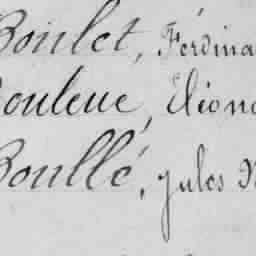 Boulet, Ferdina
Bouleue, Eléono
Boullé, jules N